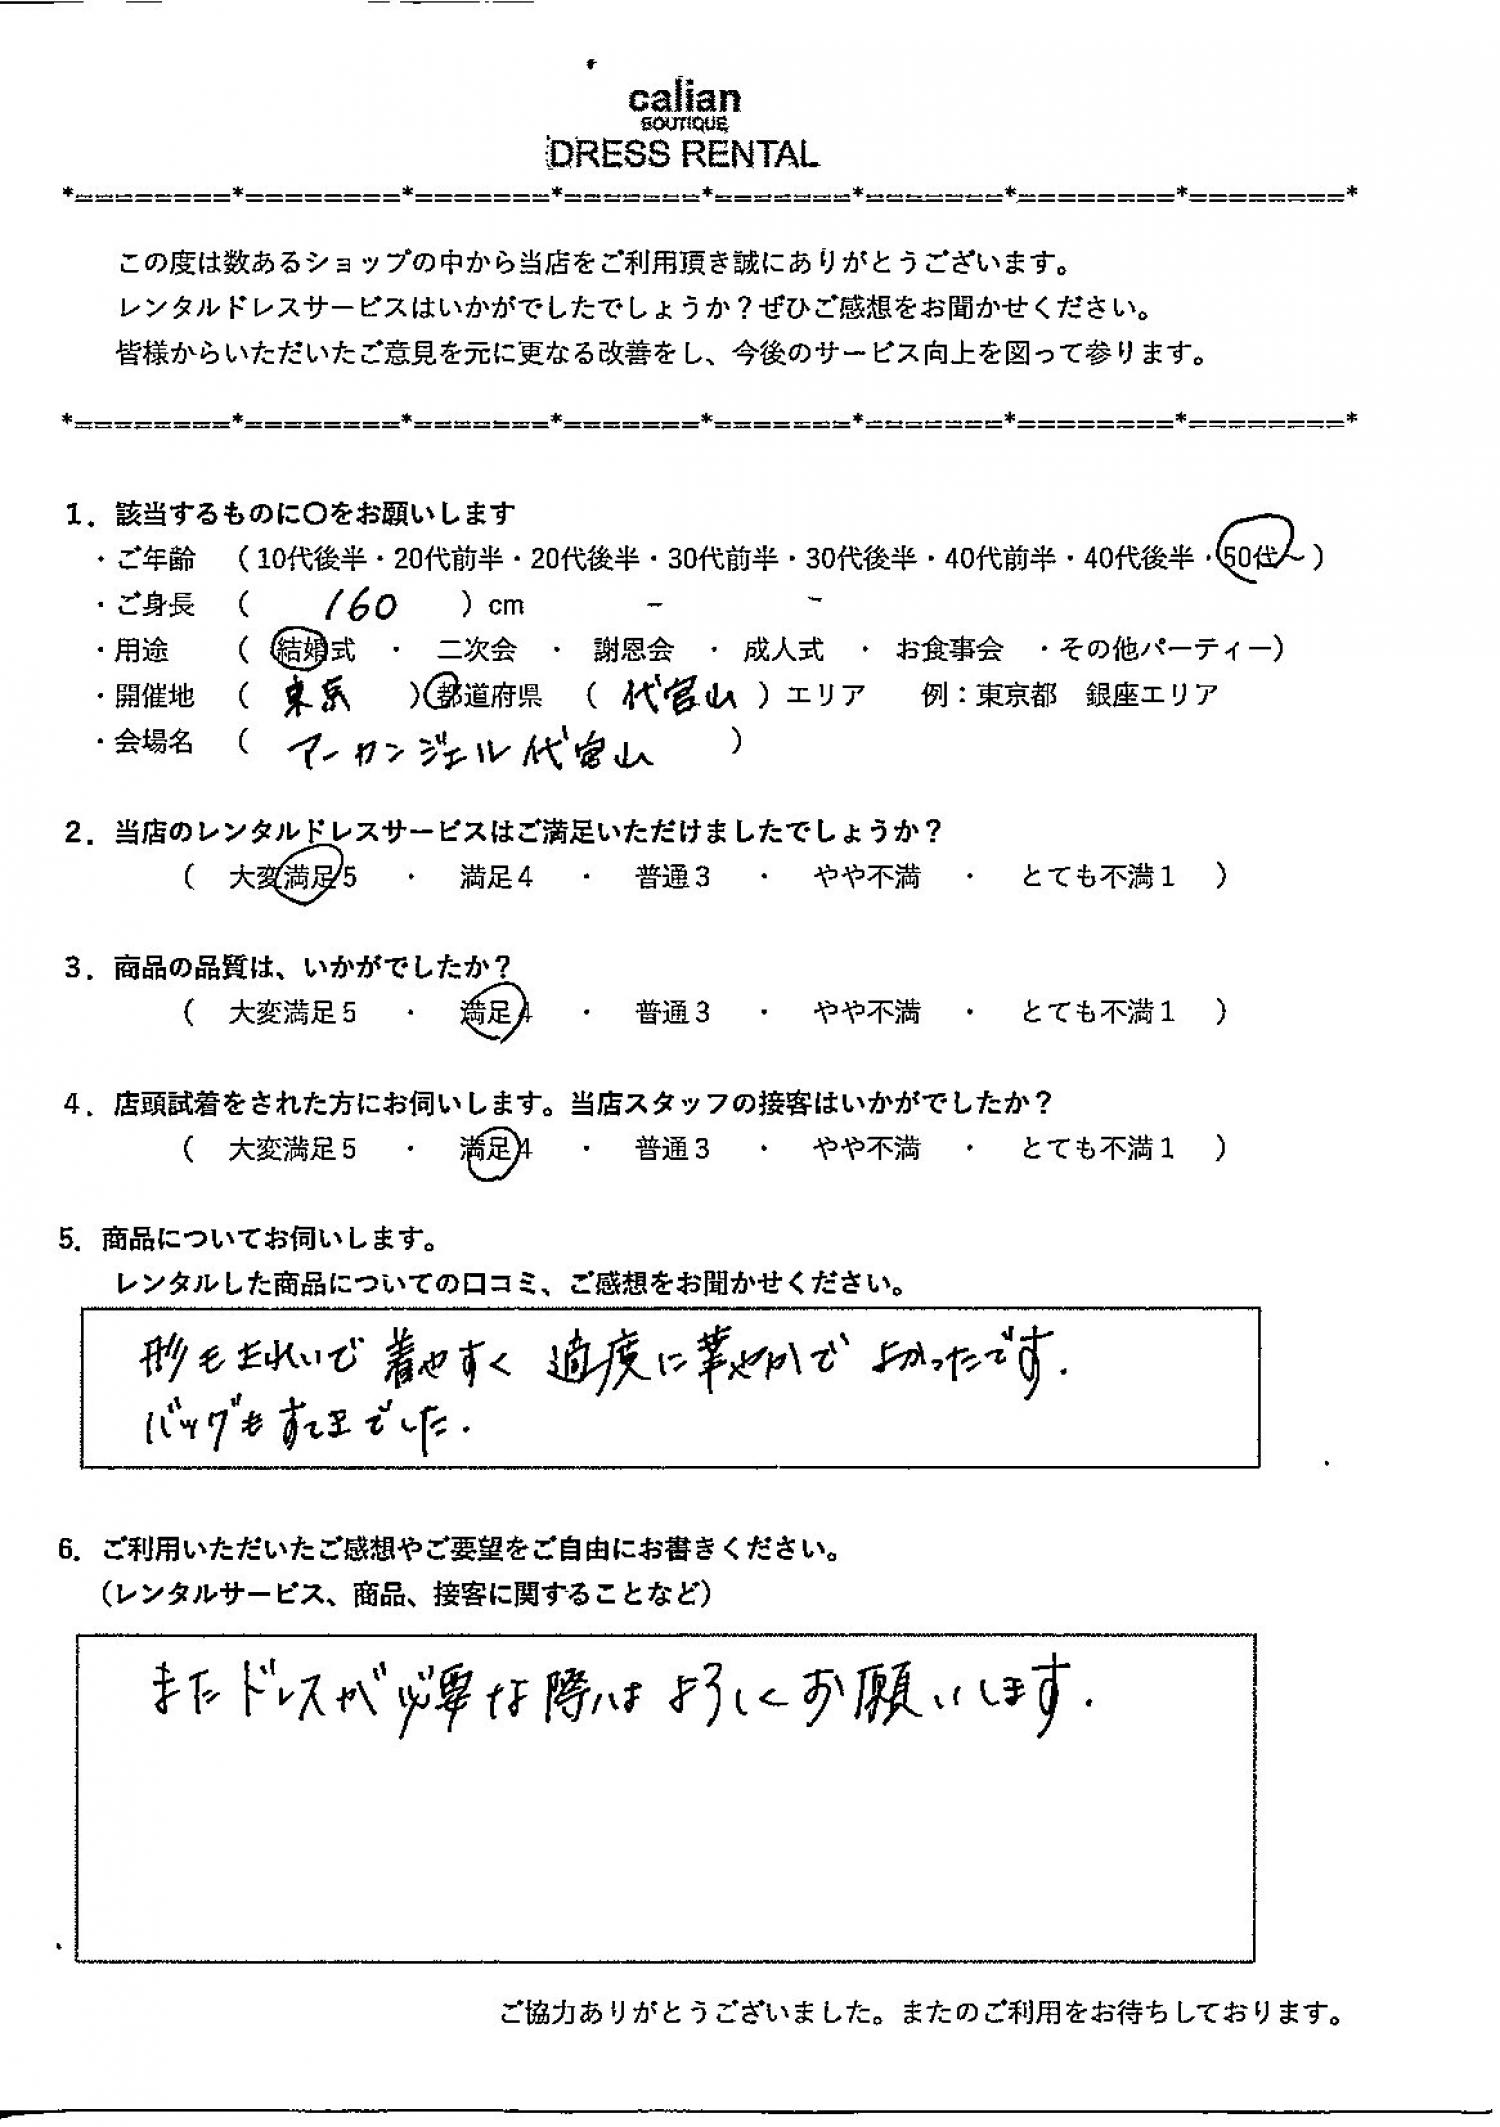 calian
BOUTIQUE
DRESS RENTAL
*========*========*=======*=======*=======*=======*========*========*
この度は数あるショップの中から当店をご利用頂き誠にありがとうございます。
レンタルドレスサービスはいかがでしたでしょうか？ぜひご感想をお聞かせください。
皆様からいただいたご意見を元に更なる改善をし、今後のサービス向上を図って参ります。
*========*========*=======*=======*=======*=======*========*========*
1．該当するものに〇をお願いします
・ご年齢　（10代後半・20代前半・20代後半・30代前半・30代後半・40代前半・40代後半・50代～）
・ご身長　（　160　）cm
・用途　（　結婚式　・　二次会　・　謝恩会　・　成人式　・　お食事会　・その他パーティー）
・開催地　（　東京　）都道府県　（　代官山　）エリア　例：東京都　銀座エリア
・会場名　（　アーカンジェル代官山　）
2．当店のレンタルドレスサービスはご満足いただけましたでしょうか？
（　大変満足５　・　満足４　・　普通３　・　やや不満　・　とても不満１　）
3．商品の品質は、いかがでしたか？
（　大変満足５　・　満足４　・　普通３　・　やや不満　・　とても不満１　）
4．店頭試着をされた方にお伺いします。当店スタッフの接客はいかがでしたか？
（　大変満足５　・　満足４　・　普通３　・　やや不満　・　とても不満１　）
5．商品についてお伺いします。
レンタルした商品についての口コミ、ご感想をお聞かせください。
形もきれいで 着やすく 適度に華やかで よかったです.
バッグもすてきでした.
6．ご利用いただいたご感想やご要望をご自由にお書きください。
（レンタルサービス、商品、接客に関することなど）
またドレスが必要な際はよろしくお願いします.
ご協力ありがとうございました。またのご利用をお待ちしております。